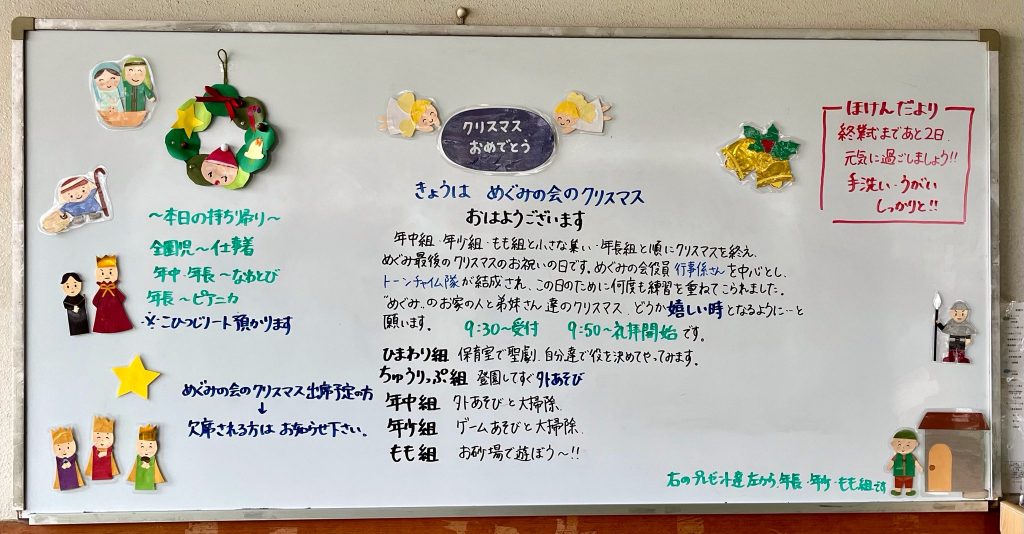 クリスマス
おめでとう
きょうは めぐみの会のクリスマス
おはようございます
年中組・年少組・もも組と小さな集い・年長組と順にクリスマスを終え、
めぐみ最後のクリスマスのお祝いの日です。めぐみの会役員 行事係さんを中心とし、
トーンチャイム隊が結成され、この日のために何度も練習を重ねてこられました。
"めぐみ"のお家の人と弟妹さん達のクリスマス、どうか嬉しい時となるように…と
願います。 9:30〜受付 9:50〜礼拝開始です。
ひまわり組 保育室で聖劇、自分達で役を決めてやってみます。
ちゅうりっぷ組 登園してすぐ外あそび
年中組 外あそびと大掃除、
年少組 ゲームあそびと大掃除、
もも組 お砂場で遊ぼう〜!!
〜本日の持ち帰り〜
全園児〜仕事着
年中・年長〜なわとび
年長〜ピアニカ
※こひつじノート預かります
めぐみの会のクリスマス出席予定の方
↓
欠席される方は お知らせ下さい。
ほけんだより
終業式まであと2日、
元気に過ごしましょう!!
手洗い・うがい
しっかりと!!
右のプレゼント達 左から、年長・年少・もも組です